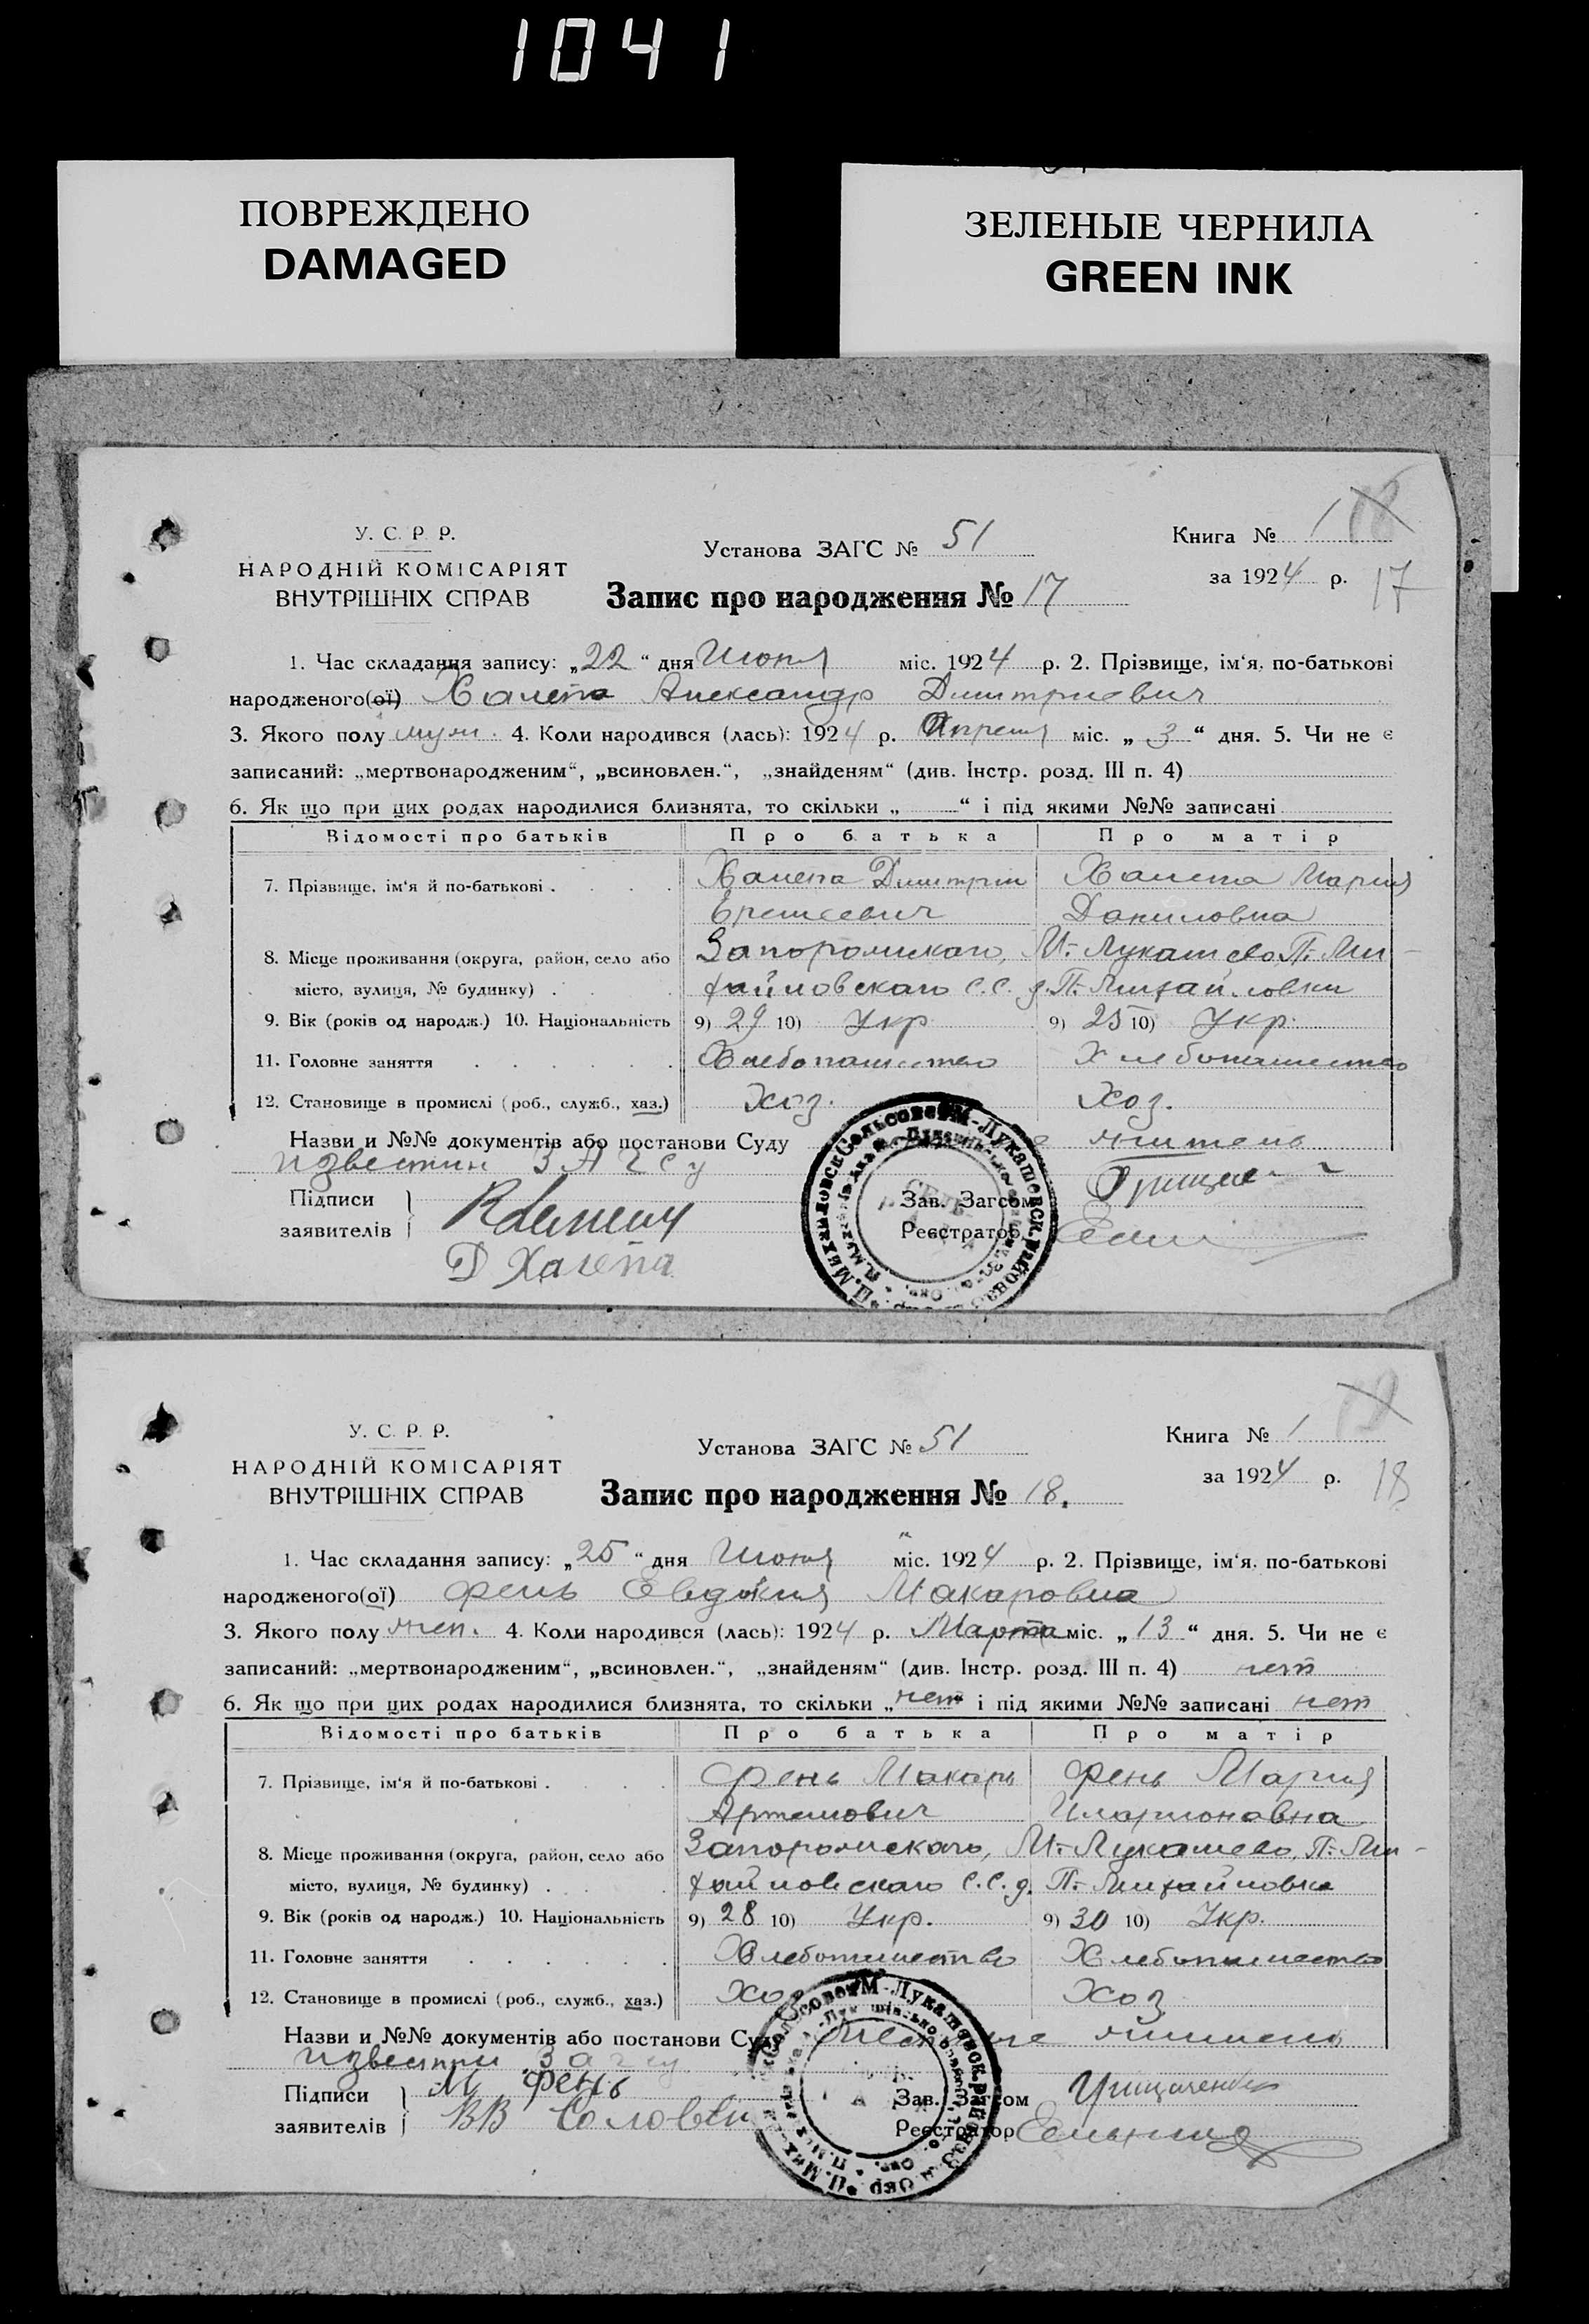 1041
ПОВРЕЖДЕНО
DAMAGED
ЗЕЛЕНЫЕ ЧЕРНИЛА
GREEN INK
У. С. Р. Р.
НАРОДНІЙ КОМІСАРІЯТ
ВНУТРІШНІХ СПРАВ
Установа ЗАГС № 51
Книга № 1
за 1924 р. 17
Запис про народження № 17
1. Час складання запису: „22“ дня Июня міс. 1924 р. 2. Прізвище, ім‘я, по-батькові
народженого(ої) Халепа Александр Димтриевич
3. Якого полу муж. 4. Коли народився (лась): 1924 р. Апреля міс. „3“ дня. 5. Чи не є
записаний: „мертвонародженим“, „всиновлен.“, „знайденям“ (див. Інстр. розд. III п. 4)
6. Як що при цих родах народилися близнята, то скільки „ “ і під якими №№ записані
Відомості про батьків Про батька Про матір
7. Прізвище, ім‘я й по-батькові . Халепа Димтрий Халепа Мария
Еремеевич Даниловна
8. Місце проживання (округа, район, село або Запорожскаго, М.-Лукашево, П.-Ми-
місто, вулиця, № будинку) . хайловскаго С.С. д. П.-Михайловки
9. Вік (років од народж.) 10. Національність 9) 29 10) Укр 9) 25 10) Укр.
11. Головне заняття Хлебопашество Хлебопашество
12. Становище в промислі (роб., служб., хаз.) Хоз. Хоз.
Назви и №№ документів або постанови Суду жители
известни ЗАГСу
Підписи
заявителів
Д Халепа
Зав. Загсом
Реєстратор
У. С. Р. Р.
НАРОДНІЙ КОМІСАРІЯТ
ВНУТРІШНІХ СПРАВ
Установа ЗАГС № 51
Книга № 1
за 1924 р. 18
Запис про народження № 18.
1. Час складання запису: „25“ дня Июня міс. 1924 р. 2. Прізвище, ім‘я, по-батькові
народженого(ої) Фень Евдокия Макаровна
3. Якого полу жен. 4. Коли народився (лась): 1924 р. Марта міс. „13“ дня. 5. Чи не є
записаний: „мертвонародженим“, „всиновлен.“, „знайденям“ (див. Інстр. розд. III п. 4) нет
6. Як що при цих родах народилися близнята, то скільки „нет і під якими №№ записані нет
Відомості про батьків Про батька Про матір
7. Прізвище, ім‘я й по-батькові . Фень Макарь Фень Мария
Артемович Иларионовна
8. Місце проживання (округа, район, село або Запорожскаго, М.-Лукашево, П.-Ми-
місто, вулиця, № будинку) . хайловскаго С.С. д. П.-Михайловка
9. Вік (років од народж.) 10. Національність 9) 28 10) Укр. 9) 30 10) Укр.
11. Головне заняття Хлебопашество Хлебопашество
12. Становище в промислі (роб., служб., хаз.) Хоз Хоз
Назви и №№ документів або постанови Суду жители
известни Загсу
Підписи М Фень
заявителів ВВ Соловей
Зав. Загсом Грищаченко
Реєстратор